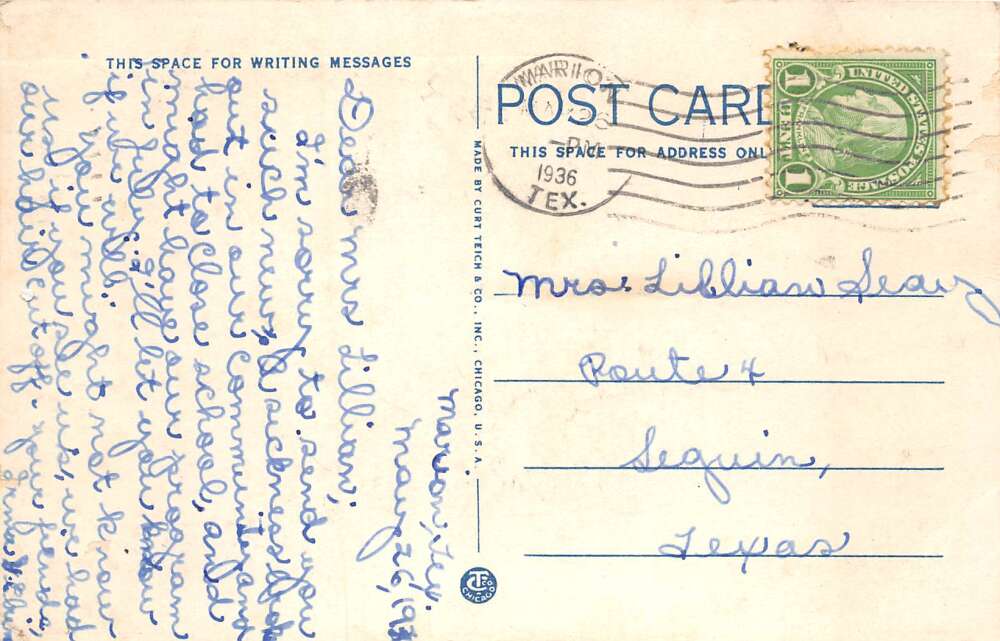 THIS SPACE FOR WRITING MESSAGES
Marion, Tex.
May 26, 193
Dear Mrs Lillian,
I'm sorry to send you
such news, a sickness broke
out in our Community and
had to close school, and
might have our program
in July, I'll let you know
if we will.
You might not know
us if you see us, we had
our hair cut off. your friends,
MADE BY CURT TEICH & CO., INC., CHICAGO, U.S.A.
POST CARD
THIS SPACE FOR ADDRESS ONLY
MARION
PM
1936
TEX.
UNITED STATES POSTAGE
1
1
Mrs. Lillian
Route 4
Seguin,
Texas
CHICAGO